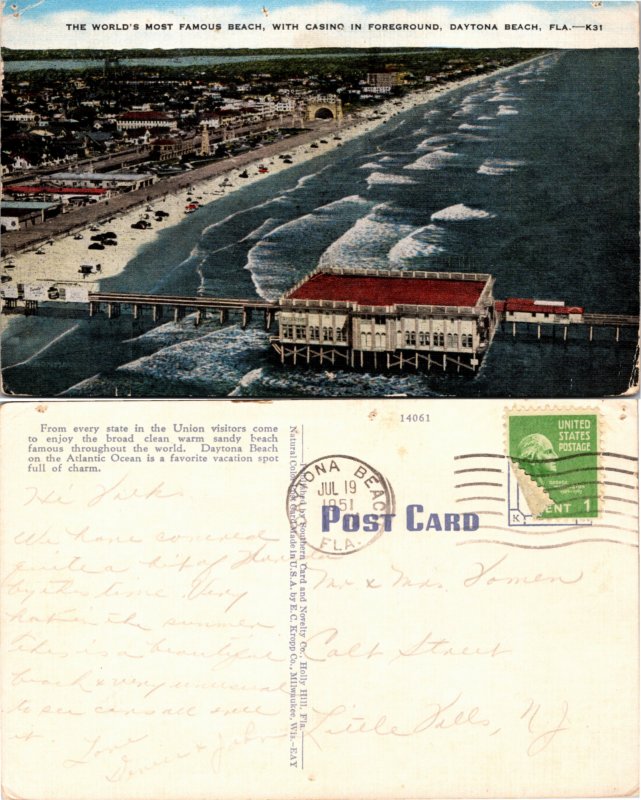 THE WORLD'S MOST FAMOUS BEACH, WITH CASINO IN FOREGROUND, DAYTONA BEACH, FLA.—K31
From every state in the Union visitors come
to enjoy the broad clean warm sandy beach
famous throughout the world. Daytona Beach
on the Atlantic Ocean is a favorite vacation spot
full of charm.
14061
Hi Folks
We have covered
quite a bit of Florida
by this time. Very
hot in the summer
this is a beautiful
beach & very unusual
to see cars all over
it
Love
& John
Published by Southern Card and Novelty Co., Holly Hill, Fla.
Natural Color Post Card Made in U.S.A. by E. C. Kropp Co., Milwaukee, Wis.—EAY
TONA BEACH
JUL 19
1951
FLA.
POST CARD
UNITED
STATES
POSTAGE
1
ENT
K
Mr & Mrs.
Colt Street
Little Falls, NJ